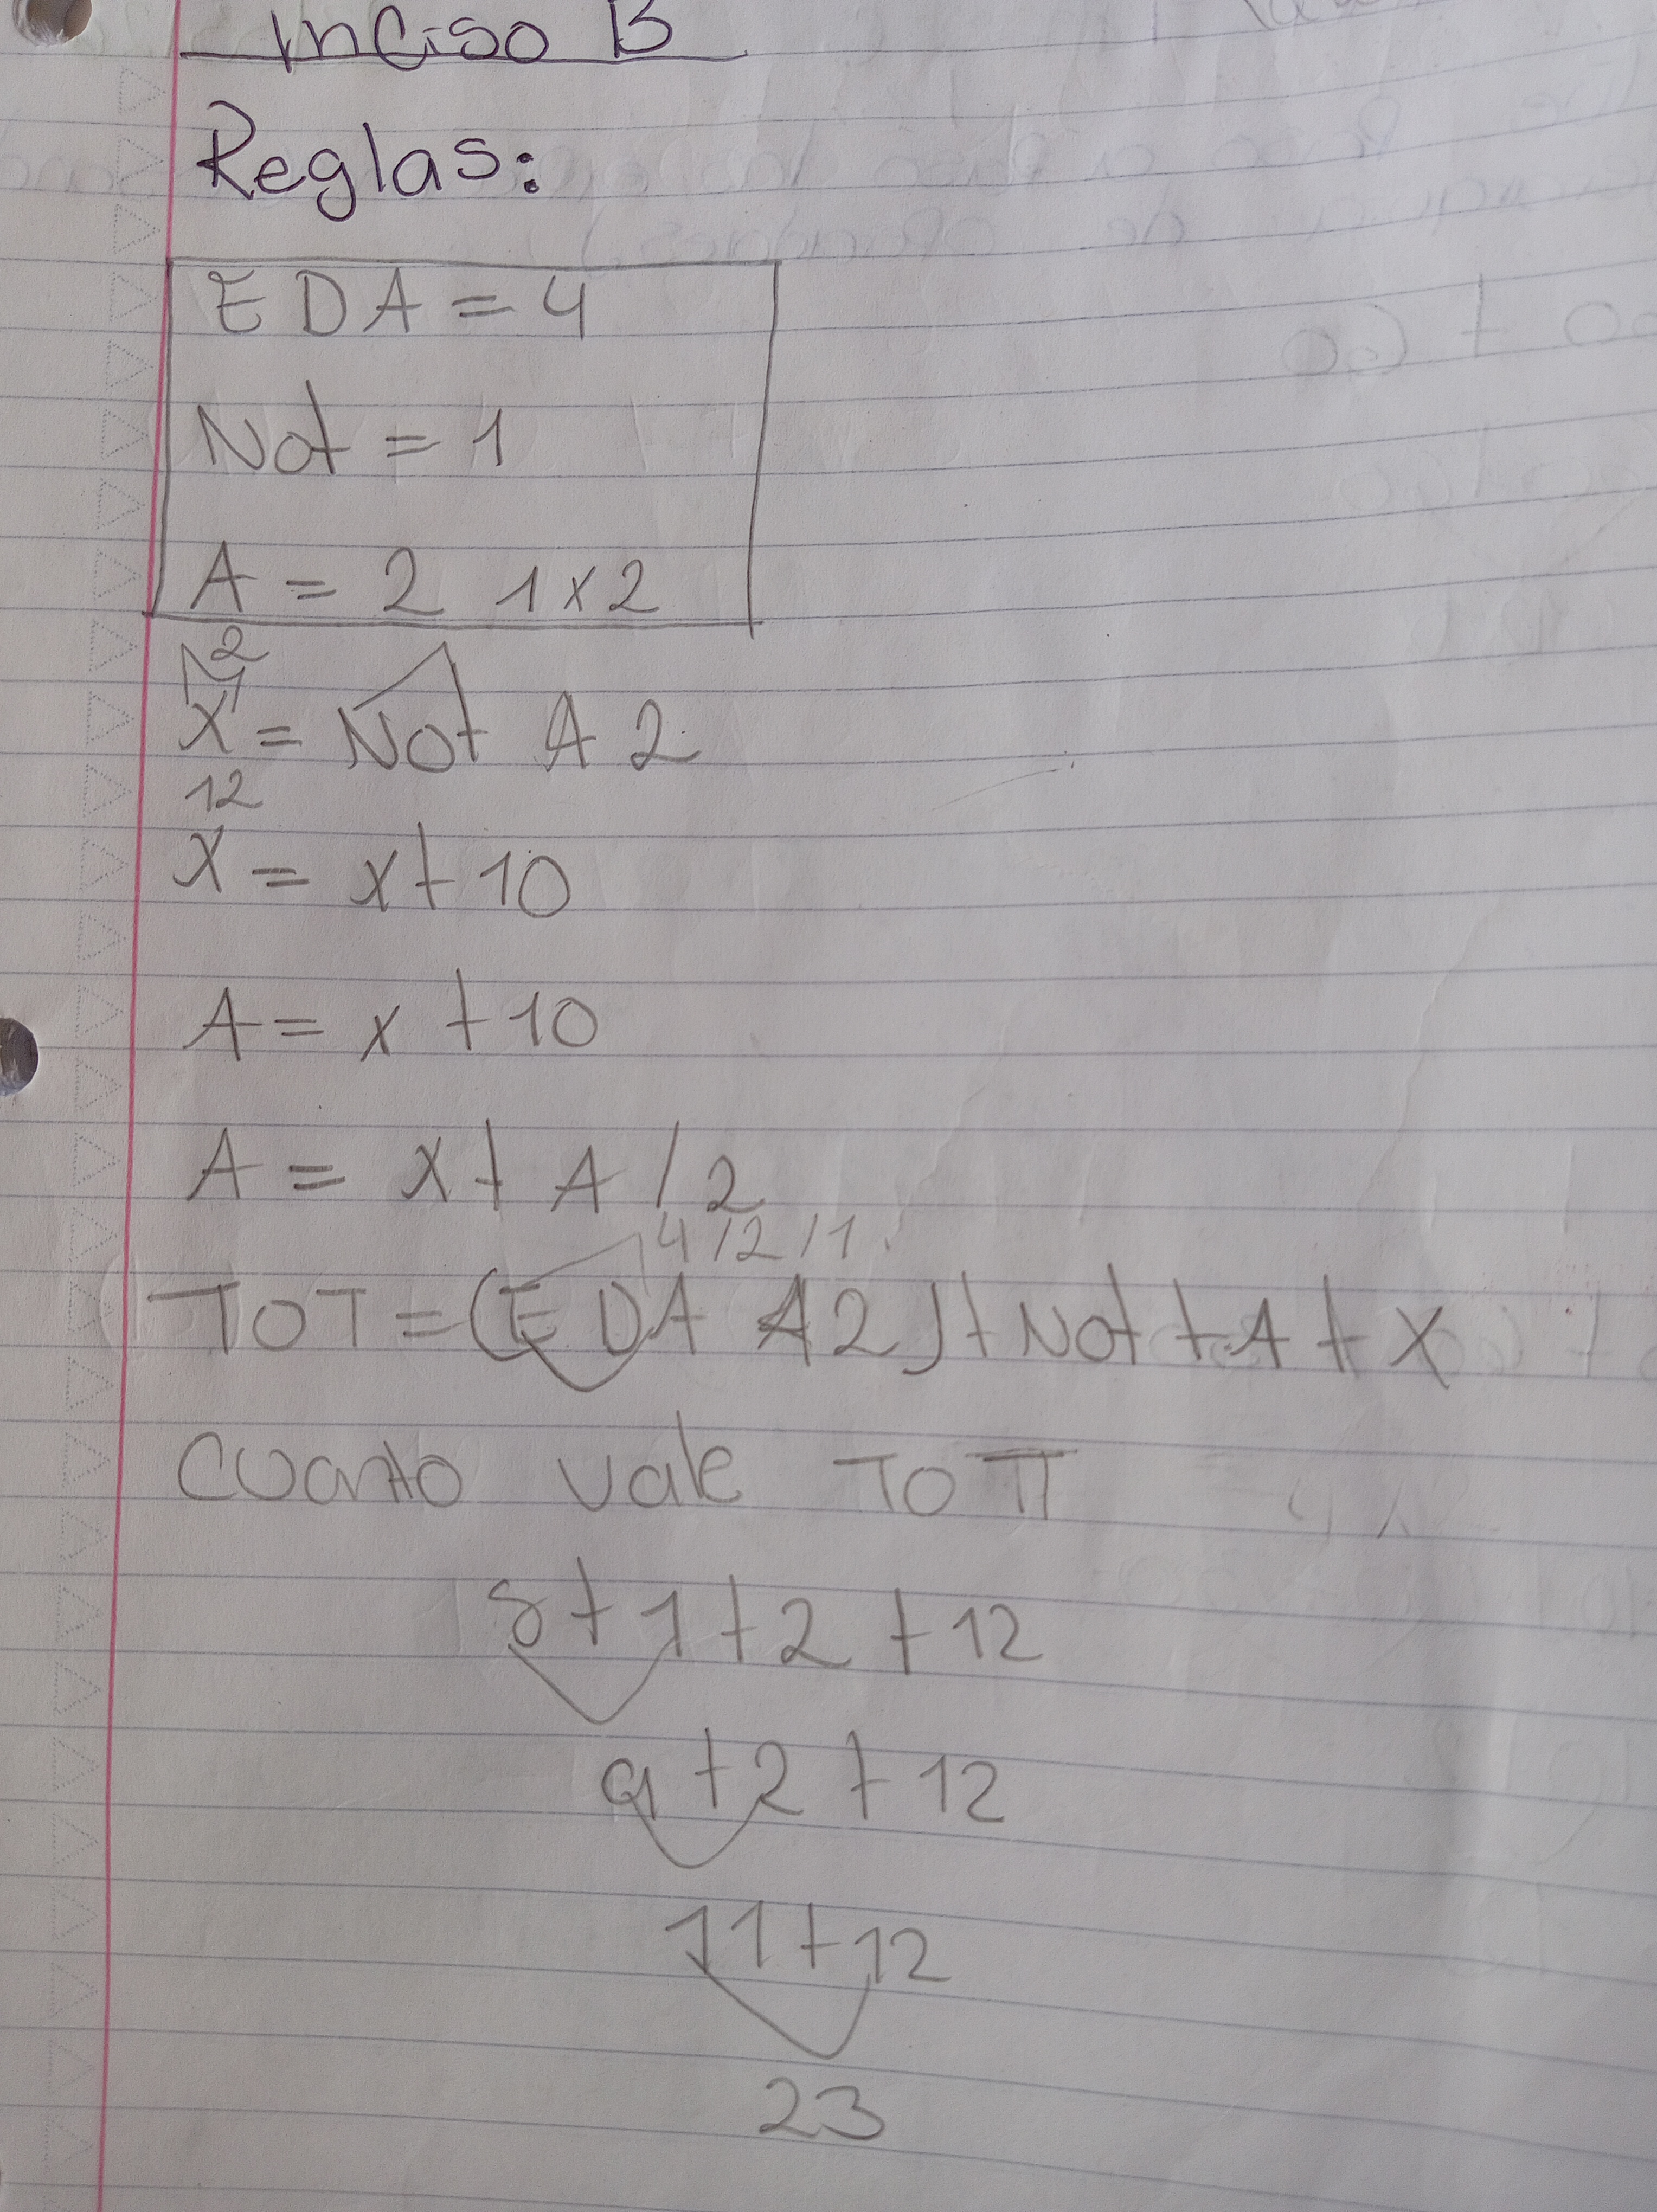 Inciso B
Reglas:
EDA = 4
Not = 1
A = 2 1x2
2
X = Not A 2
12
X = x + 10
A = x + 10
A = x + A / 2
4 / 2 / 1
TOT = (EDA A2) + Not + A + X
Cuanto vale TOT
8 + 1 + 2 + 12
9 + 2 + 12
11 + 12
23